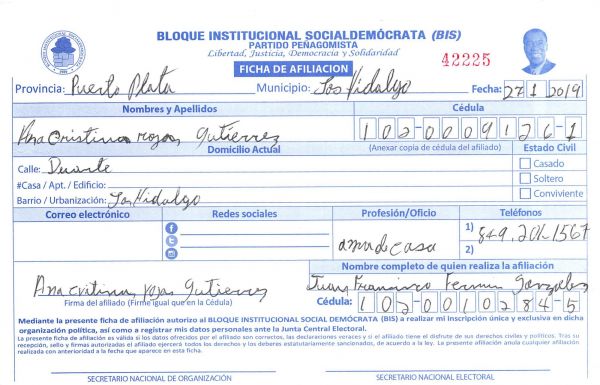 BLOQUE INSTITUCIONAL SOCIALDEMÓCRATA (BIS)
PARTIDO PEÑAGOMISTA
Libertad, Justicia, Democracia y Solidaridad
42225
FICHA DE AFILIACION
Provincia: Puerto Plata Municipio: Los Hidalgo Fecha: 27 1 2019
Nombres y Apellidos Cédula
Ana Cristina rojas Gutierrez 102-0009126-1
Domicilio Actual (Anexar copia de cédula del afiliado) Estado Civil
Calle: Duarte Casado
#Casa / Apt. / Edificio: Soltero
Barrio / Urbanización: Los Hidalgo Conviviente
Correo electrónico Redes sociales Profesión/Oficio Teléfonos
1) 849.201-1567
ama de casa 2)
Ana cristina rojas Gutierrez Juan Francisco Fermin Gonzales
Nombre completo de quien realiza la afiliación
Firma del afiliado (Firme igual que en la Cédula) Cédula: 102-0010284-5
Mediante la presente ficha de afiliación autorizo al BLOQUE INSTITUCIONAL SOCIAL DEMÓCRATA (BIS) a realizar mi inscripción única y exclusiva en dicha
organización política, así como a registrar mis datos personales ante la Junta Central Electoral.
La presente ficha de afiliación es válida si los datos ofrecidos por el afiliado son correctos, las declaraciones veraces y si el afiliado tiene el disfrute de sus derechos civiles y políticos. Tras su
recepción, sello y firmas autorizadas el afiliado ejercerá todos los derechos y los deberes estatutariamente sancionados, de acuerdo a la ley. La presente afiliación anula cualquier afiliación
realizada con anterioridad a la fecha que aparece en esta ficha.
SECRETARIO NACIONAL DE ORGANIZACIÓN SECRETARIO NACIONAL ELECTORAL